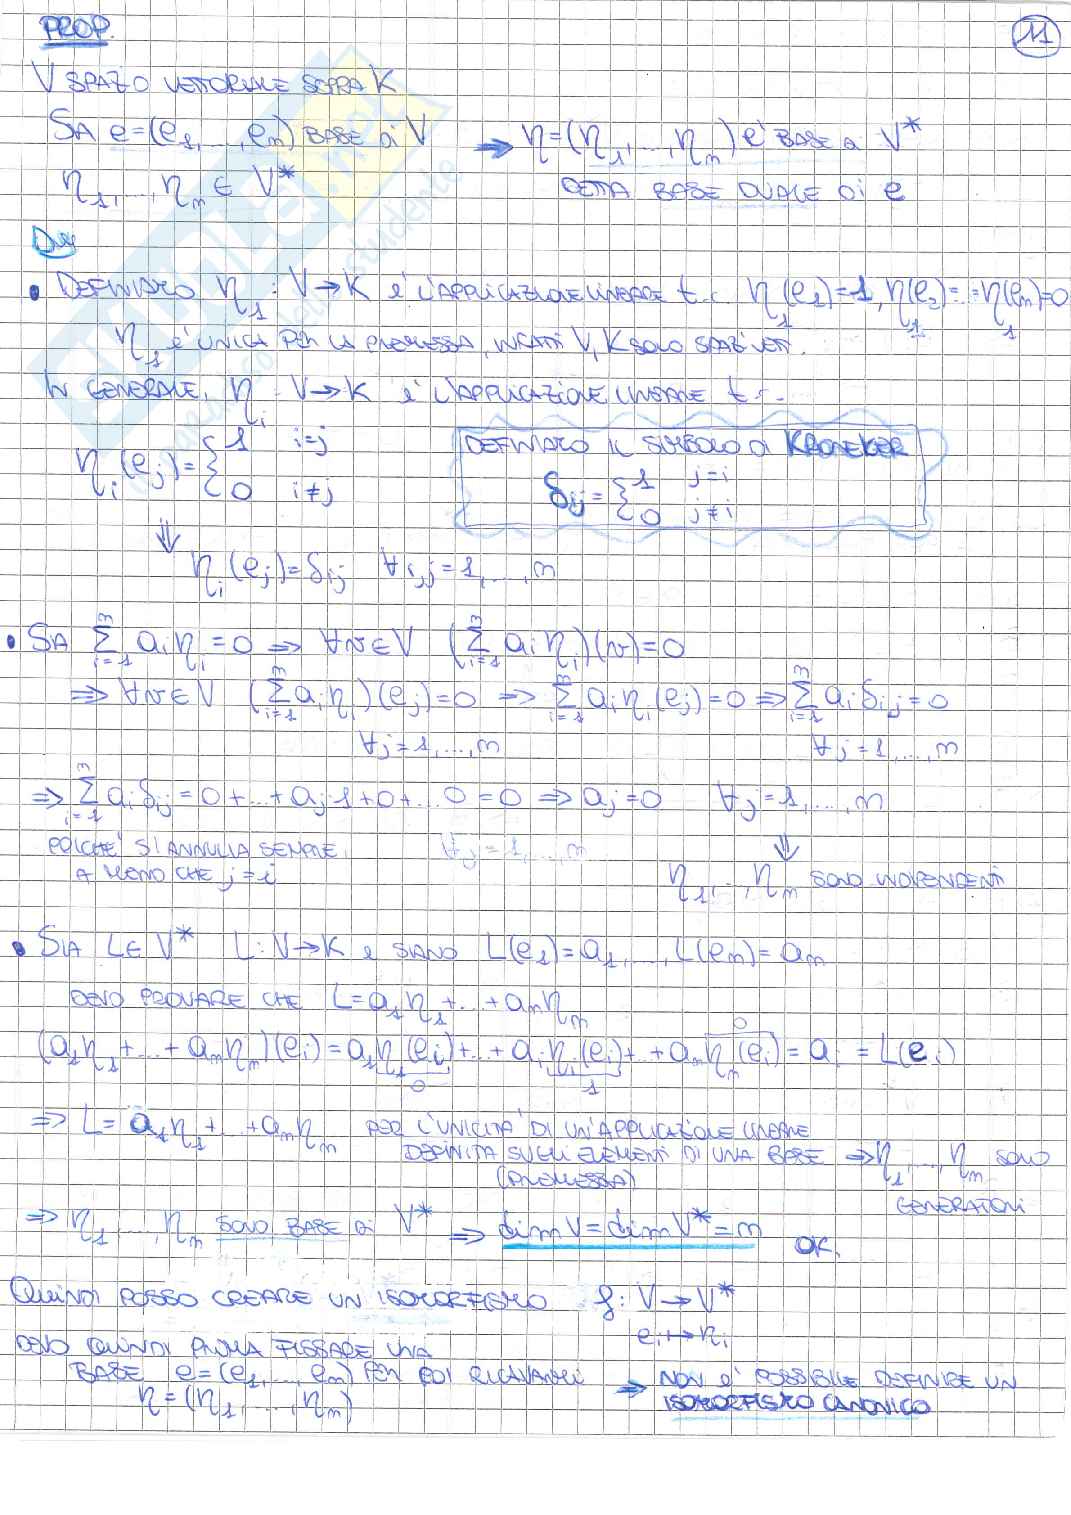 PROP. 11
V SPAZIO VETTORIALE SOPRA K
SIA e=(e₁,...,eₙ) BASE di V ⇒ η=(η₁,...,ηₙ) è BASE di V*
η₁,...,ηₙ ∈ V* DETTA BASE DUALE Di e
Dim
• DEFINIAMO η₁: V→K è L'APPLICAZIONE LINEARE t.c. η₁(e₁)=1, η₁(e₂)=...=η₁(eₙ)=0
η₁ è UNICA PER LA PREMESSA, INFATTI V, K SONO SPAZI VETT.
IN GENERALE, ηᵢ: V→K è L'APPLICAZIONE LINEARE t.c.
ηᵢ(eⱼ)={1 i=j
0 i≠j
DEFINIAMO IL SIMBOLO di KRONEKER
δᵢⱼ={1 j=i
0 j≠i
⇓
ηᵢ(eⱼ)=δᵢⱼ ∀i,j=1,...,n
• SIA Σᵢ₌₁ⁿ aᵢηᵢ=0 ⇒ ∀v∈V (Σᵢ₌₁ⁿ aᵢηᵢ)(v)=0
⇒ ∀v∈V (Σᵢ₌₁ⁿ aᵢηᵢ)(eⱼ)=0 ⇒ Σᵢ₌₁ⁿ aᵢηᵢ(eⱼ)=0 ⇒ Σᵢ₌₁ⁿ aᵢδᵢⱼ=0
∀j=1,...,n ∀j=1,...,n
⇒ Σᵢ₌₁ⁿ aᵢδᵢⱼ=0+...+aⱼ·1+0+...0=0 ⇒ aⱼ=0 ∀j=1,...,n
POICHÉ SI ANNULLA SEMPRE ∀j=1,...,n ⇓
A MENO CHE j=i η₁,...,ηₙ SONO INDIPENDENTI
• SIA L∈V* L: V→K e SIANO L(e₁)=a₁,...,L(eₙ)=aₙ
DEVO PROVARE CHE L=a₁η₁+...+aₙηₙ
(a₁η₁+...+aₙηₙ)(eᵢ)=a₁η₁(eᵢ)+...+aᵢηᵢ(eᵢ)+...+aₙηₙ(eᵢ)=aᵢ=L(eᵢ)
0 1 0
⇒ L=a₁η₁+...+aₙηₙ PER L'UNICITÀ DI UN'APPLICAZIONE LINEARE
DEFINITA SUGLI ELEMENTI DI UNA BASE ⇒ η₁,...,ηₙ SONO
(PREMESSA) GENERATORI
⇒ η₁,...,ηₙ SONO BASE di V* ⇒ dim V=dim V*=n OK.
QUINDI POSSO CREARE UN ISOMORFISMO f: V→V*
eᵢ↦ηᵢ
DEVO QUINDI PRIMA FISSARE UNA
BASE e=(e₁,...,eₙ) PER POI RICAVARCI ⇒ NON è POSSIBILE DEFINIRE UN
η=(η₁,...,ηₙ) ISOMORFISMO CANONICO